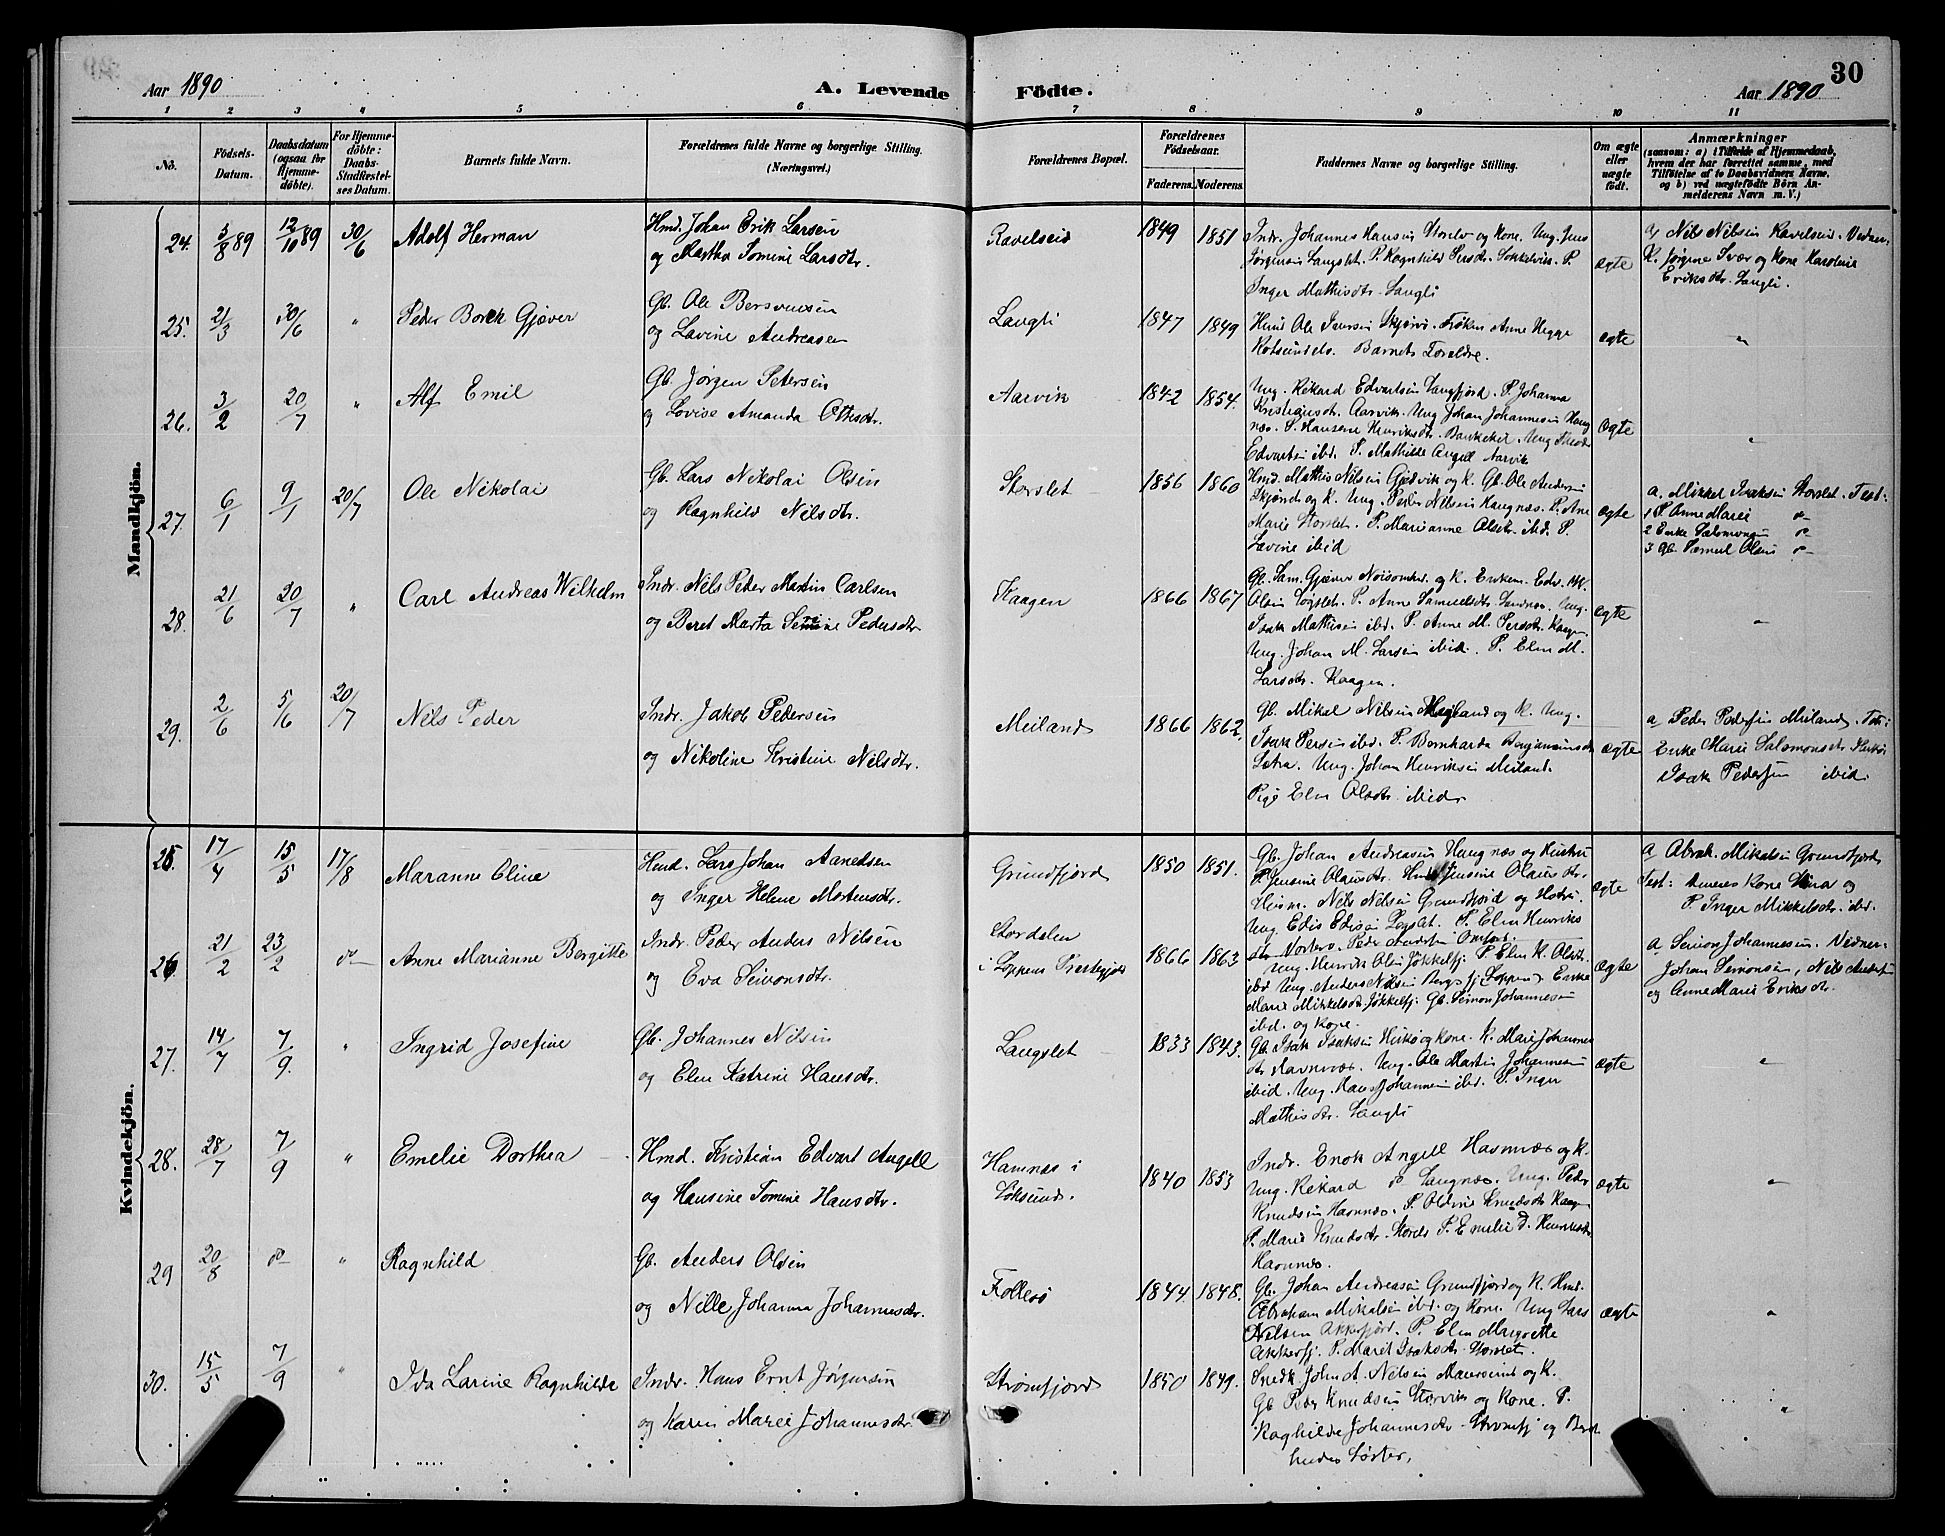 30
Aar 1890 A. Levende Födte. Aar 1890
1 2 3 4 5 6 7 8 9 10 11
No.
Födsels-
Datum.
Daabsdatum
(ogsaa for
Hjemme-
döbte).
For Hjemme-
döbte:
Daabs-
Stadfæstel-
ses Datum.
Barnets fulde Navn.
Forældrenes fulde Navne og borgerlige Stilling.
(Næringsvei.)
Forældrenes Bopæl.
Forældrenes
Födselsaar.
Faderens. Moderens.
Faddernes Navne og borgerlige Stilling.
Om ægte
eller
uægte
födt.
Anmærkninger
(saasom: a) i Tilfælde af Hjemmedaab,
hvem der har forrettet samme, med
Tilföielse af to Daabsvidners Navne,
og b) ved uægtefödte Börn An-
melderens Navn m. V.)
Mandkjön.
24. 5/8 89 12/10 89 30/6 Adolf Herman
Hmd. Johan Erik Larsen
og Martha Tomine Larsdtr.
Ravelseid 1849 1851
Indr. Johannes Hansen Storelv og Kone. Ung. Jens
Jørgensen Langslet. P. Ragnhild Persdtr. Sokkelvik. P.
Inger Mathisdtr. Langli
ægte
a, Nils Nilsen Ravelseid. Vidner:
K. Jørgine Ivær og Kone Karoline
Eriksdtr. Langli.
25. 21/3 30/6 " Peder Borch Gjæver
Gb. Ole Bersvensen
og Lavine Andreasen
Langli 1847 1849
Hmd Ole Skjervø. Frøken Anne Hegge
Rotsundelv. Barnets Forældre.
ægte "
26. 3/2 20/7 " Alf Emil
Gb. Jørgen Petersen
og Lovise Amanda
Aarvik 1842 1854.
Ung. Rikard Edvartsen Langfjord. P. Johanna
Kristiansdtr. Aarvik. Ung Johan Johannesen Haug
næs. P. Hansene Henriksdtr. Bankekeil. Ung
Edvartsen ibd. P. Mathilde Angell Aarvik
ægte "
27. 6/1 9/1 20/7 Ole Nikolai
Gb. Lars Nikolai Olsen
og Ragnhild Nilsdtr.
Storslet 1856 1860
Hmd. Mathis Nilsen Gjøvik og K. Gb. Ole Andersen
og K. Ung. Peder Nilsen Haugnæs. P. Ane
Marie Storslet. P. Marianne Olsdtr. ibd. P.
Lavine ibid
ægte
a. Mikkel Isaksen Storslet. Test:
1 P. Anne Marie do
2 Enke Salomonsen do
3 Gb. Samuel Olsen do
28. 21/6 20/7 " Carl Andreas Wilhelm
Indr. Nils Peder Martin Carlsen
og Beret Marta Pedersdtr.
Kaagen 1866 1867
Gb. Sam. Gjæver og K. Enkem. Edv. Hk.
Olsen Løgslet. P. Anne Samuelsdtr. Sandnæs. Ung.
Isak Mathisen ibd. P. Anne M. Persdtr. Kaagen.
Ung. Johan M. Larsen ibid. P. Elen M.
Larsdtr. Kaagen.
ægte "
29. 2/6 5/6 20/7 Nils Peder
Indr. Jakob Pedersen
og Nikoline Kristine Nilsdtr.
Meiland 1866 1862.
Gb. Mikal Nilsen Meiland og K. Ung.
Isak Persen ibd. P. Bernharda Benjaminsdtr
Sætra. Ung. Johan Henriksen Meiland.
Pige Elen Olsdtr. ibid.
ægte
a Peder Pedersen Meiland. Test:
Enke Marie Salomonsdtr.
Isak Pedersen ibid.
Kvindekjön.
25. 17/4 15/5 17/8 Maranne Oline
Hmd. Lars Johan Arnedsen
og Inger Helene Mortensdtr.
Grundfjord 1850 1851.
Gb. Johan Andreasen Haugnæs og Hustru
P. Jensine Olausdtr. Jensine Olausdtr.
Heim. Nils Nilsen Grundfjord og Hustru.
Ung Edis Edisen Løgslet. P. Elen Henriks
ægte
a Abrah. Mikalsen Grundfjord
Test: dennes Kone og
P. Inger Mikkelsdtr. ibd.
26. 21/2 23/2 do Anne Marianne Bergitte
Indr. Peder Anders Nilsen
og Eva Seimonsdtr.
Stordalen
i Loppens Prestegjeld 1866 1863
dtr Peder Andersen
Ung. Henrik Olsen Jøkkelfj. P. Elen K. Olsdtr.
ibd. Ung. Anders Nilsen Bergsfj. Loppen. Enke
Marie Mikkelsdtr Jøkkelfj. Gb. Seimon Johannesen
ibd. og Kone.
ægte
a Seimon Johannesen. Vidner:
Johan Seimonsen, Nils Andersen
og Anne Marie Eriksdtr.
27. 14/7 7/9. " Ingrid Josefine
Gb. Johannes Nilsen
og Elen Katrine Hansdtr.
Langslet 1833 1843.
Gb. Isak Isaksen Hukø og Kone. K. Marie Johannes
dtr Havnnæs. Ung. Ole Martin Johannesen
ibid. Ung. Hans Johannesen ibd. P. Inger
Mathisdtr. Langli
ægte "
28. 28/7 7/9 " Emelie Dorthea
Hmd. Kristian Edvart Angell
og Hansine Tomine Hansdtr.
Hamnæs i
Løksund. 1840 1853
Indr. Enok Angell Havnnæs og K.
Ung. Rikard do Langnæs. Ung. Peder
Knudsen Havnnæs. P. Oldine Knudsdtr Kaagen
P. Marie Knudsdtr. P. Emelie D. Henriksdtr.
Havnnæs.
ægte "
29 20/8 do " Ragnhild
Gb. Anders Olsen
og Nille Johanna Johannesdtr.
Follesø 1844 1848.
Gb. Johan Andreasen Grundfjord og K. Hmd.
Abraham Mikalsen ibd. og Kone. Ung Lars
Nilsen Akkefjord. P. Elen Margrette
Akkarfj. P. Maret Isaksdtr. Storslet.
ægte "
30. 15/5 7/9 " Ida Larine Ragnhilde
Indr. Hans Ernt Jørgensen
og Karen Marie Johannesdtr.
Strømfjord 1850 1849.
Snedk John A. Nilsen Maursund og K.
Gb Peder Knudsen Storvik og Kone. P.
Raghilde Johannesdtr. Strømfj og
hendes Søster.
"